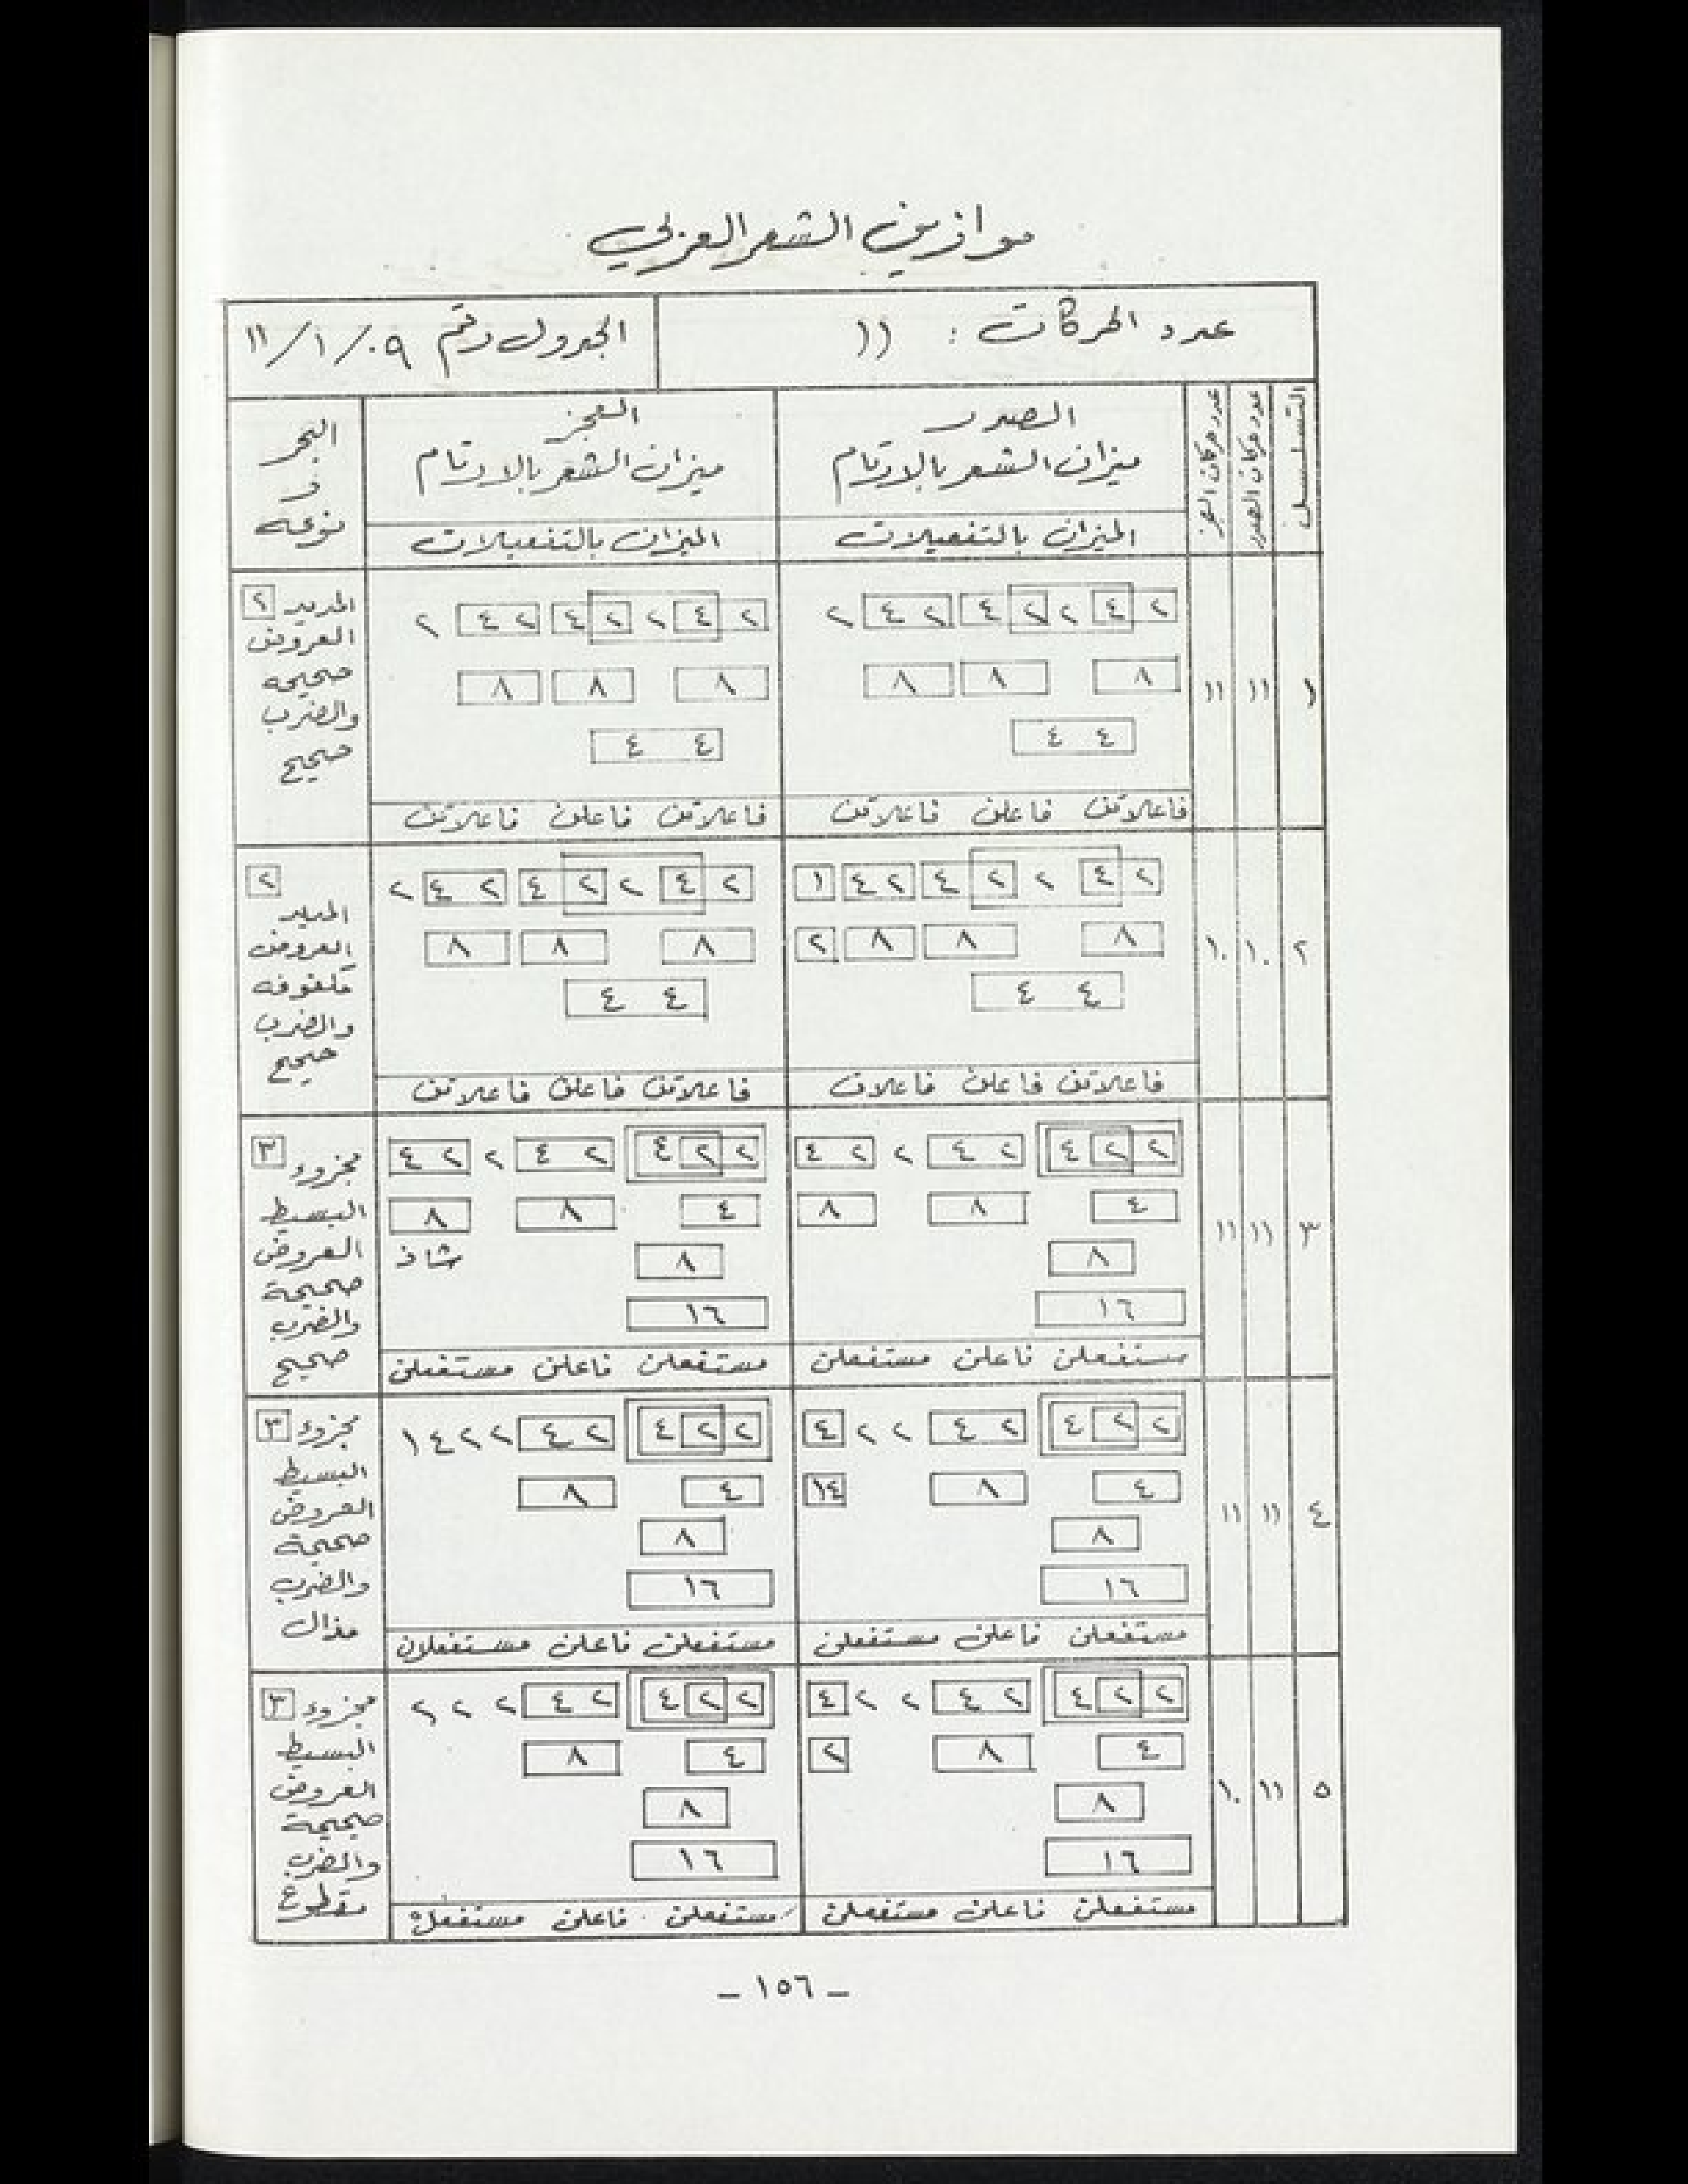 موازين الشعر العربي
عدد الحركات : ١١
الجدول رقم ٠٩ / ١ / ١١
التسلسل
عدد حركات الصدر
عدد حركات العجز
الصدر
ميزان الشعر بالارقام
الميزان بالتفعيلات
العجز
ميزان الشعر بالارقام
الميزان بالتفعيلات
البحر
و
نوعه
١
١١
١١
٢ ٤ ٢ ٢ ٤ ٢ ٤ ٢
٨ ٨ ٨
٤ ٤
فاعلاتن فاعلن فاعلاتن
٢ ٤ ٢ ٢ ٤ ٢ ٤ ٢
٨ ٨ ٨
٤ ٤
فاعلاتن فاعلن فاعلاتن
المديد ٢
العروض
صحيحه
والضرب
صحيح
٢
١٠
١٠
٢ ٤ ٢ ٢ ٤ ٢ ٤ ١
٨ ٨ ٨ ٢
٤ ٤
فاعلاتن فاعلن فاعلات
٢ ٤ ٢ ٢ ٤ ٢ ٤ ٢
٨ ٨ ٨
٤ ٤
فاعلاتن فاعلن فاعلاتن
٢
المديد
العروض
مكفوفه
والضرب
صحيح
٣
١١
١١
٢ ٢ ٤ ٢ ٤ ٢ ٢ ٤
٤ ٨ ٨
٨
١٦
مستفعلن فاعلن مستفعلن
٢ ٢ ٤ ٢ ٤ ٢ ٢ ٤
٤ ٨ ٨
٨ شاذ
١٦
مستفعلن فاعلن مستفعلن
مجزوء ٣
البسيط
العروض
صحيحة
والضرب
صحيح
٤
١١
١١
٢ ٢ ٤ ٢ ٤ ٢ ٢ ٤
٤ ٨ ١٤
٨
١٦
مستفعلن فاعلن مستفعلن
٢ ٢ ٤ ٢ ٤ ٢ ٢ ٤ ١
٤ ٨
٨
١٦
مستفعلن فاعلن مستفعلان
مجزوء ٣
البسيط
العروض
صحيحة
والضرب
مذال
٥
١١
١٠
٢ ٢ ٤ ٢ ٤ ٢ ٢ ٤
٤ ٨ ٢
٨
١٦
مستفعلن فاعلن مستفعلن
٢ ٢ ٤ ٢ ٤ ٢ ٢ ٢
٤ ٨
٨
١٦
مستفعلن فاعلن مستفعلْ
مجزوء ٣
البسيط
العروض
صحيحة
والضرب
مقطوع
– ١٥٦ –